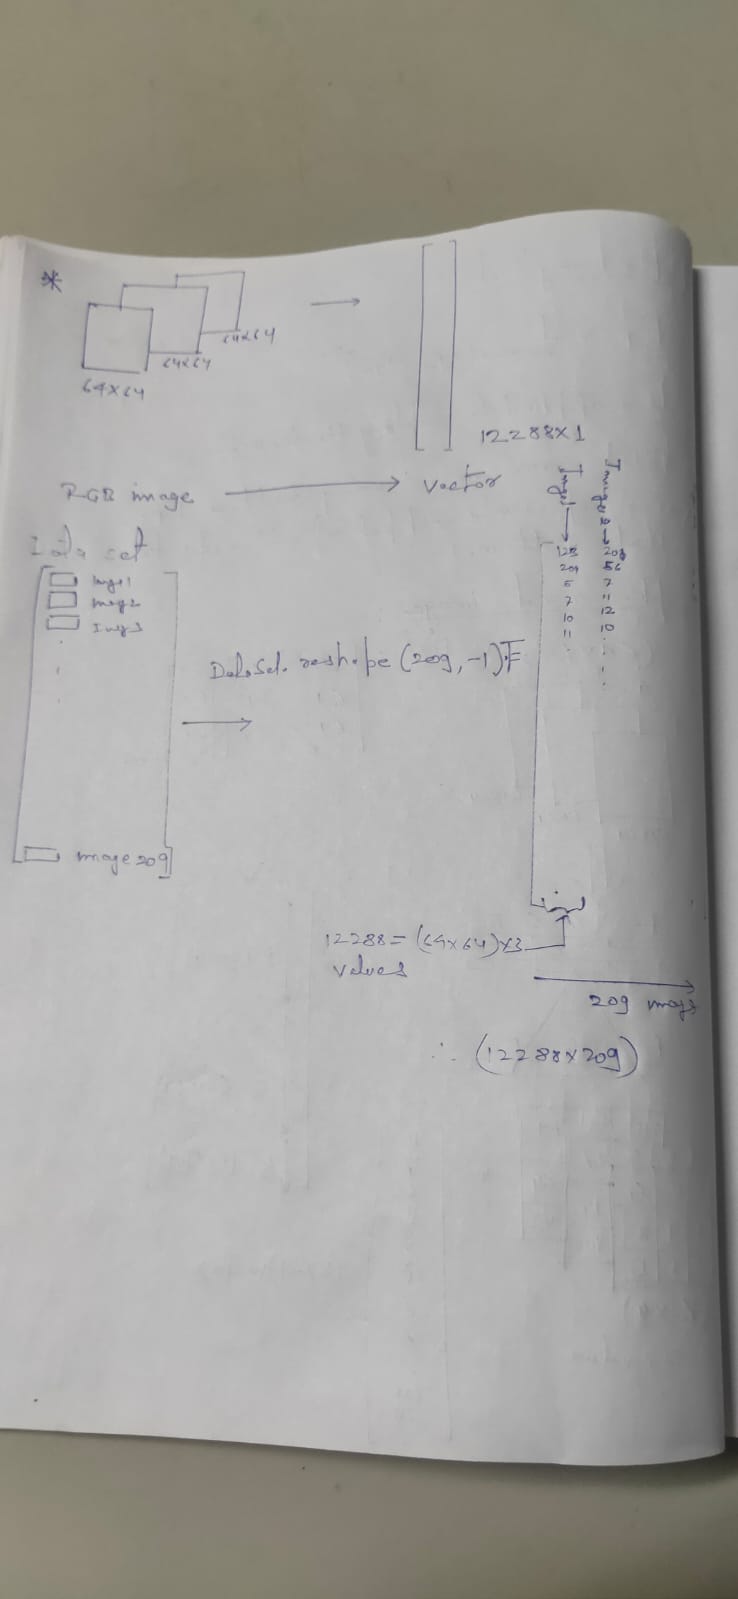 *
64x64
64x64
64x64
12288x1
RGB image → vector
Data set
Image1
Image2
Image3
Image 209
DataSet. reshape (209, -1).T
Image1 →
Image 2 →
209
5
7
10
11
7
11
12
10
12288 = (64x64)x3
values
209 images
∴ (12288x209)